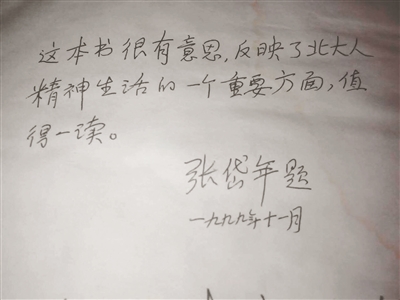 这本书很有意思,反映了北大人
精神生活的一个重要方面,值
得一读。
张岱年题
一九九九年十一月